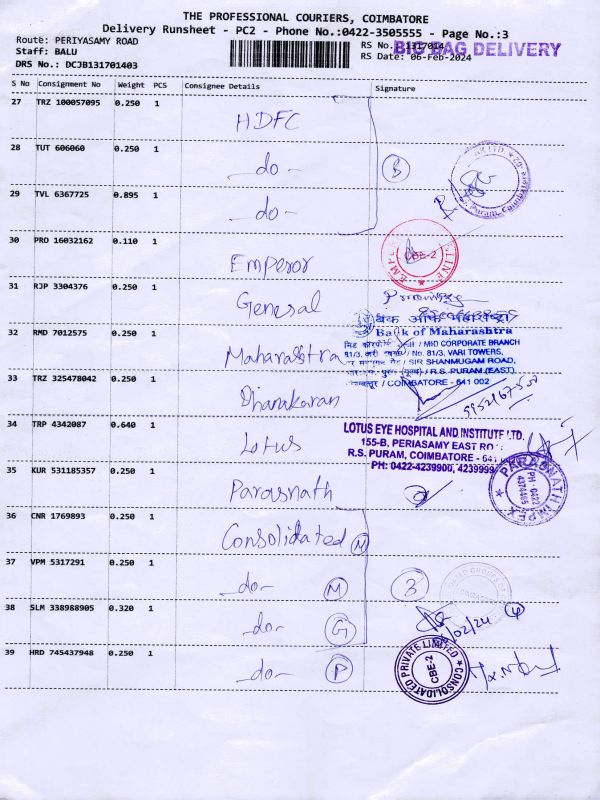 THE PROFESSIONAL COURIERS, COIMBATORE
Delivery Runsheet - PC2 - Phone No.:0422-3505555 - Page No.:3
Route: PERIYASAMY ROAD
Staff: BALU
DRS No.: DCJB131701403
RS No.: 1317014
BIG BAG DELIVERY
RS Date: 06-Feb-2024
S No Consignment No Weight PCS Consignee Details Signature
27 TRZ 100057095 0.250 1 HDFC
28 TUT 606060 0.250 1 -do-
29 TVL 6367725 0.895 1 -do-
30 PRO 16032162 0.110 1 Emperor
CBE-2
31 RJP 3304376 0.250 1 General
32 RMD 7012575 0.250 1 Maharashtra
बैंक ऑफ महाराष्ट्र
Bank of Maharashtra
/ MID CORPORATE BRANCH
/ No. 81/3, VARI TOWERS,
/ SIR SHANMUGAM ROAD,
/ R.S. PURAM (EAST),
/ COIMBATORE - 641 002
33 TRZ 325478042 0.250 1 Dhanakaran
34 TRP 4342087 0.640 1 Lotus
LOTUS EYE HOSPITAL AND INSTITUTE LTD.
155-B, PERIASAMY EAST
R.S. PURAM, COIMBATORE - 641
PH: 0422-4239900, 4239999
35 KUR 531185357 0.250 1 Parasnath
PARASNATH IMPEX
PH: 0422
36 CNR 1769893 0.250 1 Consolidated M
37 VPM 5317291 0.250 1 -do- M
3
38 SLM 338988905 0.320 1 -do- G
39 HRD 745437948 0.250 1 -do- P
CONSOLIDATED PRIVATE LIMITED
CBE-2